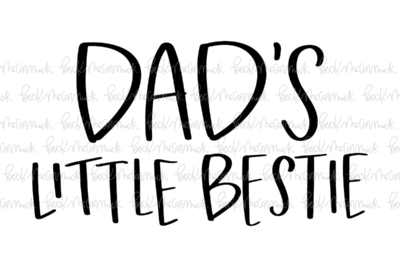 DAD'S
LITTLE BESTIE